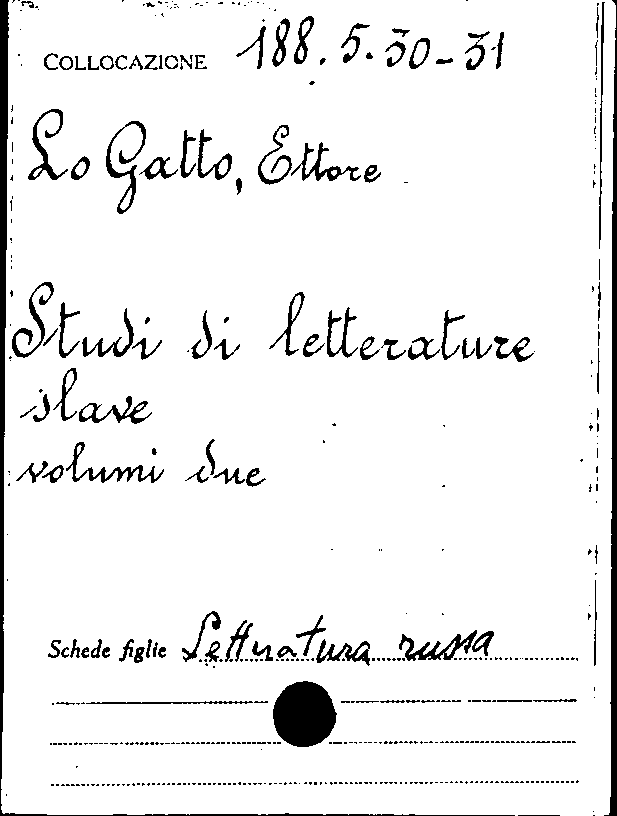 COLLOCAZIONE 188.5.30-31
Lo Gatto, Ettore
Studi di letterature
slave
volumi due
Schede figlie Letteratura russa